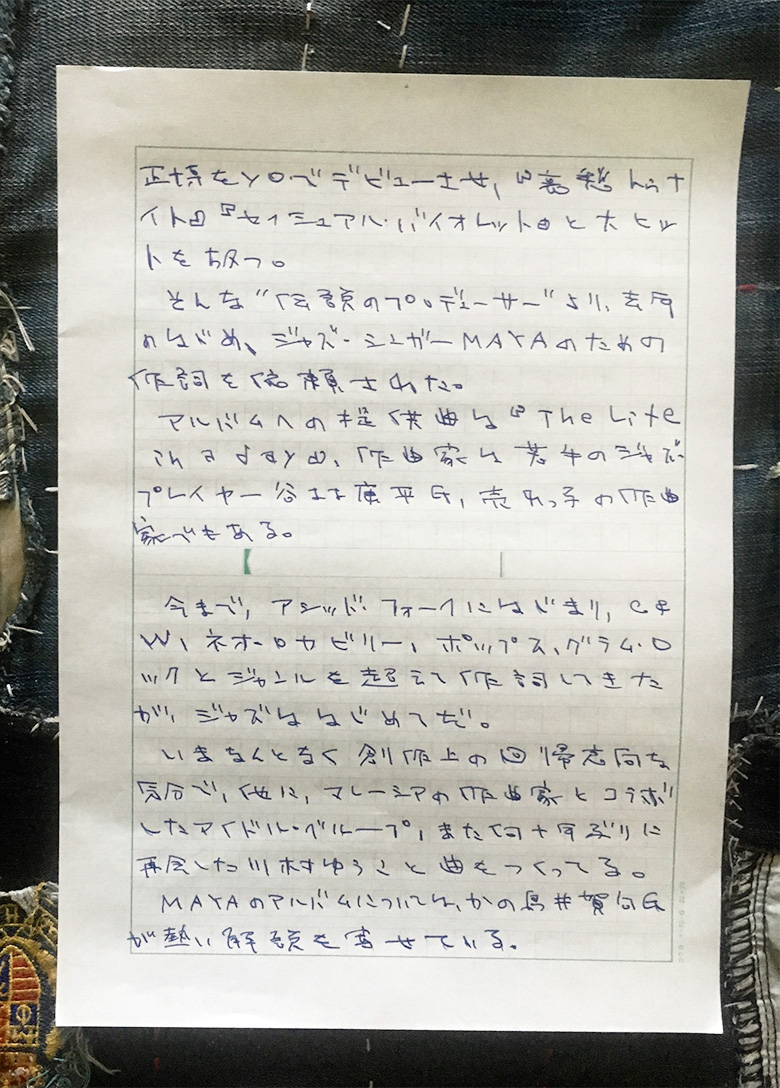 正博をYOでデビューさせ,『哀愁トゥナ
イト』『セクシュアル・バイオレット』と大ヒッ
トを放つ。
そんな"伝説のプロデューサー"より、去年
のはじめ、ジャズ・シンガーMAYAのための
作詞を依頼された。
アルバムへの提供曲は『The Life
, 作曲家は若手のジャズ・
プレイヤー 平氏, 売れっ子の作曲
家でもある。
今まで, アシッド・フォークにはじまり, C&
W, ネオ・ロカビリー, ポップス, グラム・ロ
ックとジャンルを超えて作詞してきた
が, ジャズははじめてだ。
いまなんとなく創作上の回帰志向な
気分で, 他に, マレーシアの作曲家とコラボ
したアイドル・グループ, また何十年ぶりに
再会した川村ゆうこと曲をつくってる。
MAYAのアルバムについては, かの鳥井賀句氏
が熱い解説を寄せている。